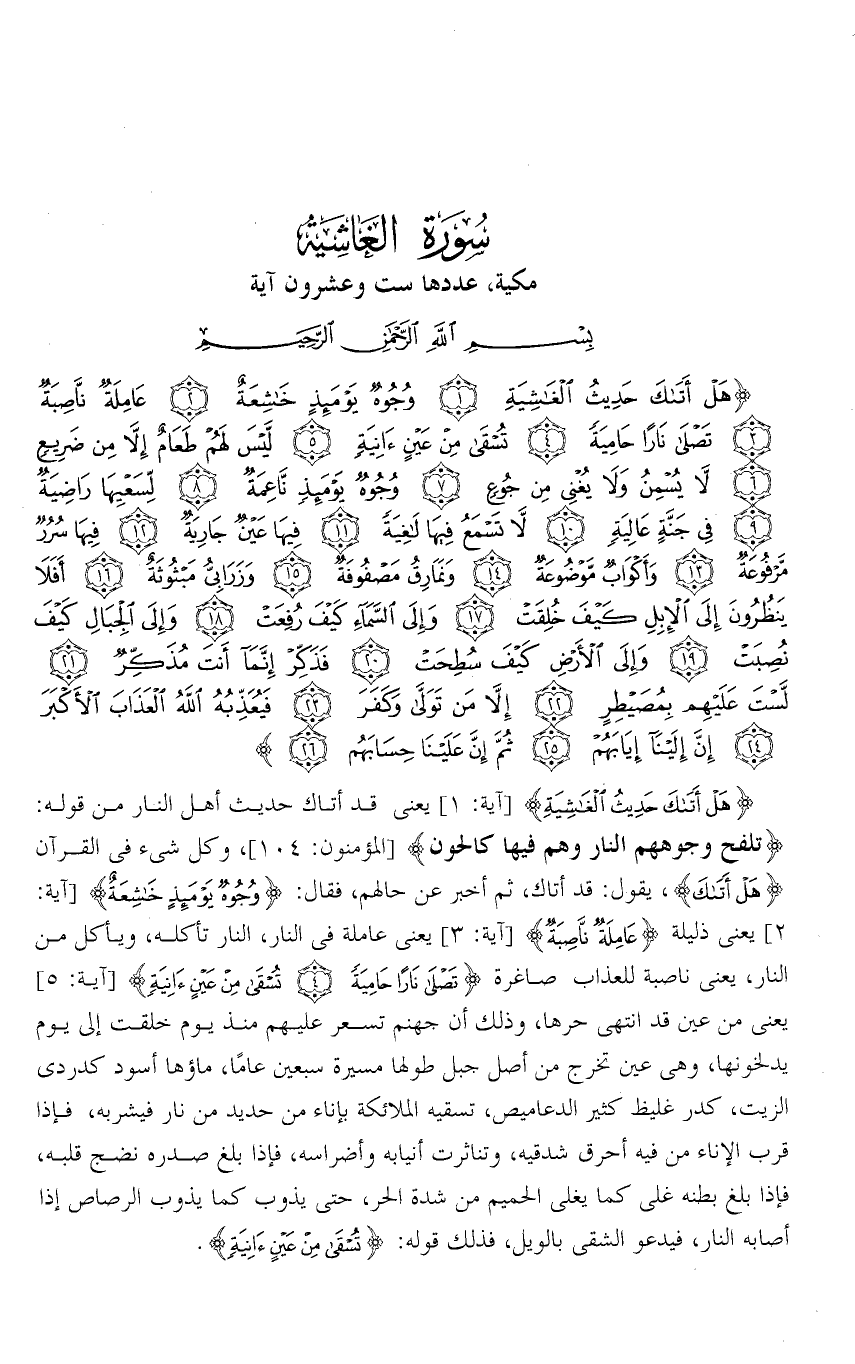 سُورَةُ الغَاشِيَةِ
مكية، عددها ست وعشرون آية
بِسْمِ ٱللَّهِ ٱلرَّحْمَٰنِ ٱلرَّحِيمِ
﴿هَلْ أَتَىٰكَ حَدِيثُ ٱلْغَٰشِيَةِ ۝١ وُجُوهٌ يَوْمَئِذٍ خَٰشِعَةٌ ۝٢ عَامِلَةٌ نَّاصِبَةٌ
۝٣ تَصْلَىٰ نَارًا حَامِيَةً ۝٤ تُسْقَىٰ مِنْ عَيْنٍ ءَانِيَةٍ ۝٥ لَّيْسَ لَهُمْ طَعَامٌ إِلَّا مِن ضَرِيعٍ
۝٦ لَّا يُسْمِنُ وَلَا يُغْنِى مِن جُوعٍ ۝٧ وُجُوهٌ يَوْمَئِذٍ نَّاعِمَةٌ ۝٨ لِّسَعْيِهَا رَاضِيَةٌ
۝٩ فِى جَنَّةٍ عَالِيَةٍ ۝١٠ لَّا تَسْمَعُ فِيهَا لَٰغِيَةً ۝١١ فِيهَا عَيْنٌ جَارِيَةٌ ۝١٢ فِيهَا سُرُرٌ
مَّرْفُوعَةٌ ۝١٣ وَأَكْوَابٌ مَّوْضُوعَةٌ ۝١٤ وَنَمَارِقُ مَصْفُوفَةٌ ۝١٥ وَزَرَابِىُّ مَبْثُوثَةٌ ۝١٦ أَفَلَا
يَنظُرُونَ إِلَى ٱلْإِبِلِ كَيْفَ خُلِقَتْ ۝١٧ وَإِلَى ٱلسَّمَآءِ كَيْفَ رُفِعَتْ ۝١٨ وَإِلَى ٱلْجِبَالِ كَيْفَ
نُصِبَتْ ۝١٩ وَإِلَى ٱلْأَرْضِ كَيْفَ سُطِحَتْ ۝٢٠ فَذَكِّرْ إِنَّمَآ أَنتَ مُذَكِّرٌ ۝٢١
لَّسْتَ عَلَيْهِم بِمُصَيْطِرٍ ۝٢٢ إِلَّا مَن تَوَلَّىٰ وَكَفَرَ ۝٢٣ فَيُعَذِّبُهُ ٱللَّهُ ٱلْعَذَابَ ٱلْأَكْبَرَ
۝٢٤ إِنَّ إِلَيْنَآ إِيَابَهُمْ ۝٢٥ ثُمَّ إِنَّ عَلَيْنَا حِسَابَهُم ۝٢٦ ﴾
﴿هَلْ أَتَىٰكَ حَدِيثُ ٱلْغَٰشِيَةِ﴾ [آية: ١] يعنى قد أتاك حديث أهل النار من قوله:
﴿تلفح وجوههم النار وهم فيها كالحون﴾ [المؤمنون: ١٠٤]، وكل شىء فى القرآن
﴿هَلْ أَتَىٰكَ﴾، يقول: قد أتاك، ثم أخبر عن حالهم، فقال: ﴿وُجُوهٌ يَوْمَئِذٍ خَٰشِعَةٌ﴾ [آية:
٢] يعنى ذليلة ﴿عَامِلَةٌ نَّاصِبَةٌ﴾ [آية: ٣] يعنى عاملة فى النار، النار تأكله، ويأكل من
النار، يعنى ناصبة للعذاب صاغرة ﴿تَصْلَىٰ نَارًا حَامِيَةً ۝٤ تُسْقَىٰ مِنْ عَيْنٍ ءَانِيَةٍ﴾ [آية: ٥]
يعنى من عين قد انتهى حرها، وذلك أن جهنم تسعر عليهم منذ يوم خلقت إلى يوم
يدخلونها، وهى عين تخرج من أصل جبل طولها مسيرة سبعين عامًا، ماؤها أسود كدردى
الزيت، كدر غليظ كثير الدعاميص، تسقيه الملائكة بإناء من حديد من نار فيشربه، فإذا
قرب الإناء من فيه أحرق شدقيه، وتناثرت أنيابه وأضراسه، فإذا بلغ صدره نضج قلبه،
فإذا بلغ بطنه غلى كما يغلى الحميم من شدة الحر، حتى يذوب كما يذوب الرصاص إذا
أصابه النار، فيدعو الشقى بالويل، فذلك قوله: ﴿تُسْقَىٰ مِنْ عَيْنٍ ءَانِيَةٍ﴾.